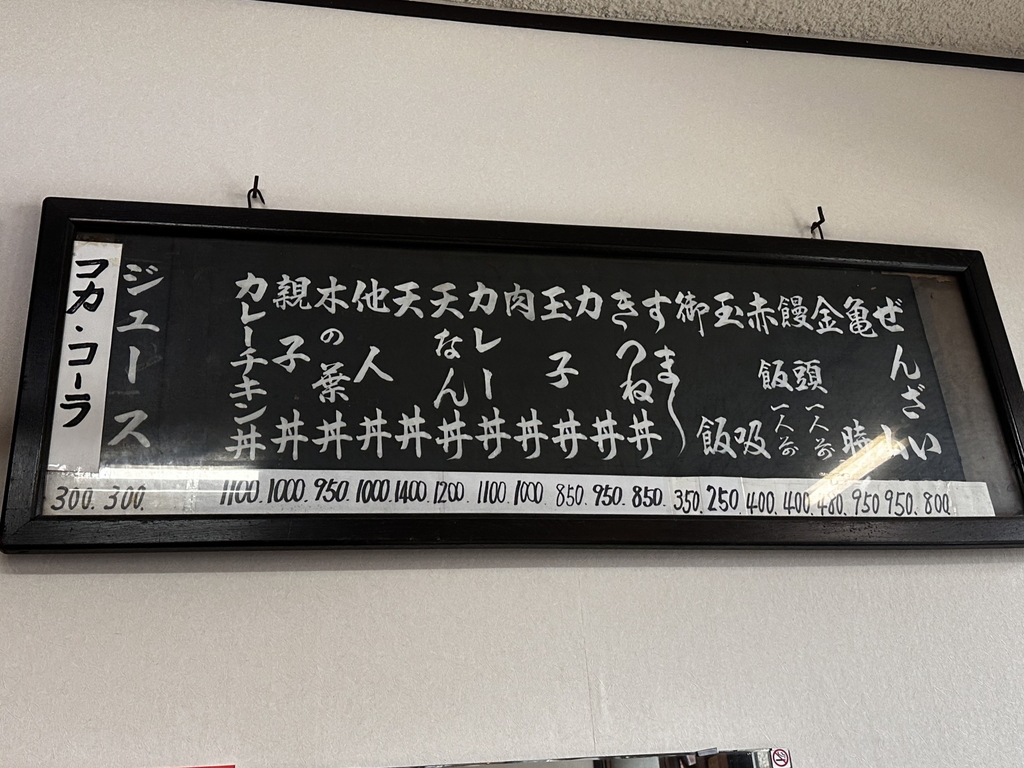 ぜんざい 800.
亀山 950.
金時 950
饅頭 一人前 480.
赤飯 一人前 400.
玉吸 400.
御飯 250.
すまし 350.
きつね丼 850.
力丼 950.
玉子丼 850.
肉丼 1000.
カレー丼 1100.
天なん丼 1200.
天丼 1400.
他人丼 1000.
木の葉丼 950.
親子丼 1000.
カレーチキン丼 1100.
ジュース 300.
コカ・コーラ 300.